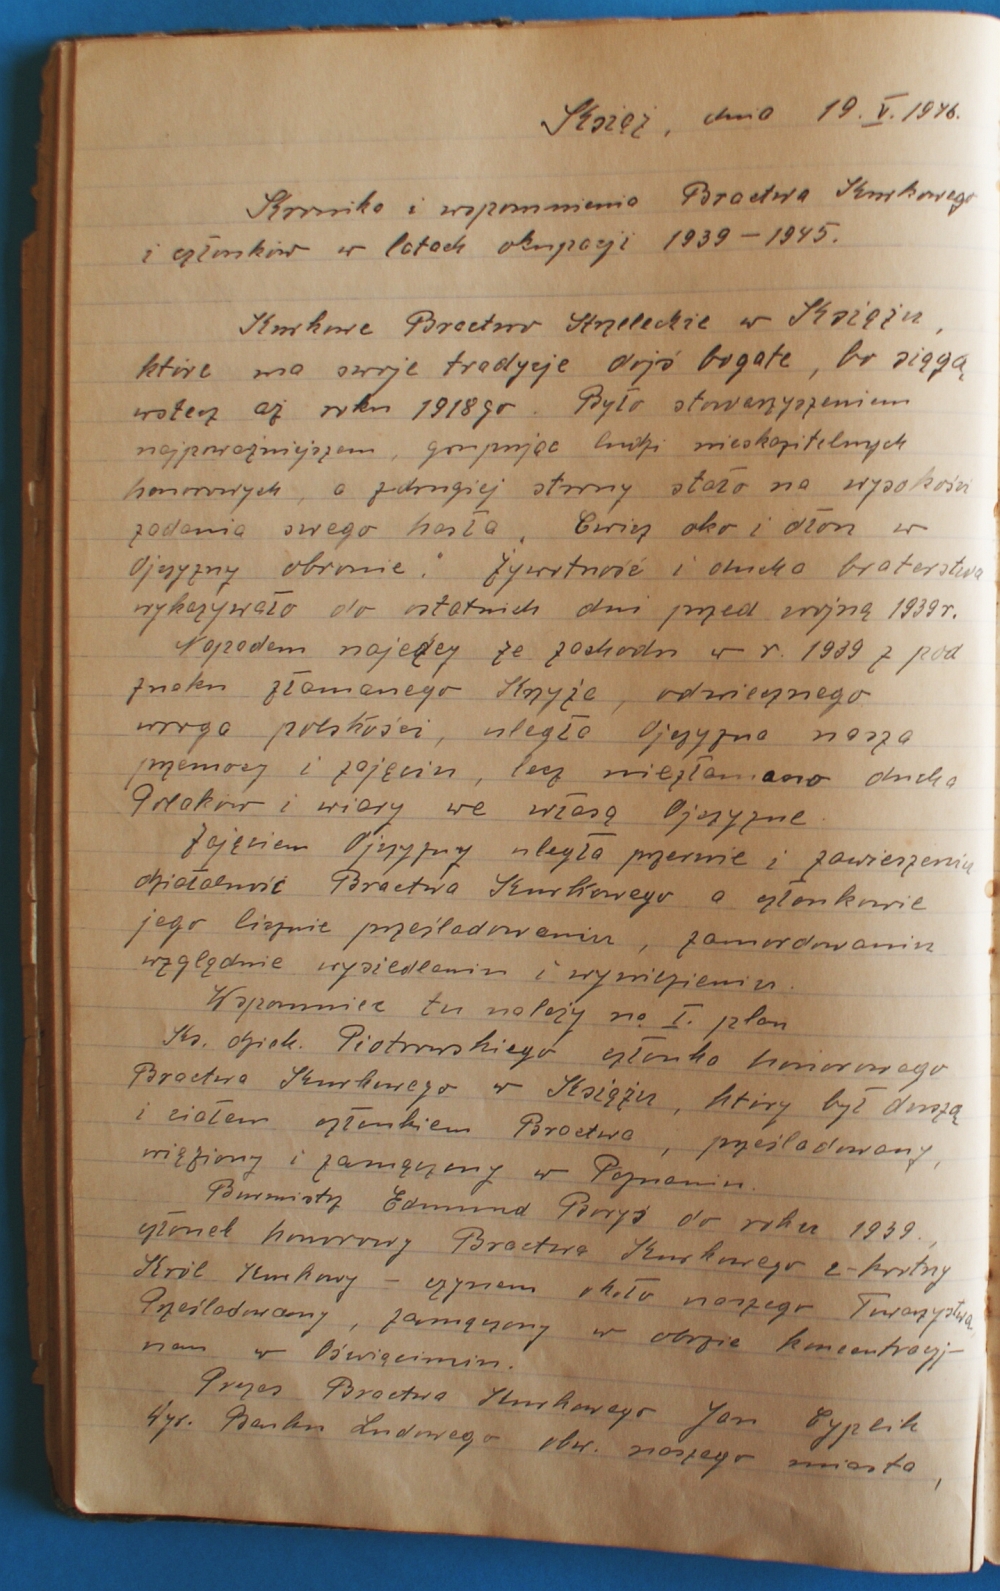 Książ, dnia 19.V.1946.
Kronika i wspomnienia Bractwa Kurkowego
i członków w latach okupacji 1939 – 1945.
Kurkowe Bractwo Strzeleckie w Książu,
które ma swoje tradycje dojś bogate, bo siągą
wstecz aż roku 1918go. Było stowarzyszeniem
najpoważniejszem, grupując ludzi nieskazitelnych
honorowych, a zdrugiej strony stało na wysokości
zadania swego hasła, Ćwicz oko i dłoń w
Ojczyzny obronie." Żywotność i ducha braterstwa
wykazywało do ostatnich dni przed wojną 1939r.
Napadem najeźcy ze zachodu w r. 1939 z pod
znaku złamanego Krzyża, odwiecznego
wroga polskości, uległa Ojczyzna nasza
przemocy i zajęciu, lecz niezłamano ducha
Polaków i wiary we własą Ojczyznę.
Zajęciem Ojczyzny uległa przerwie i zawieszeniu
działalność Bractwa Kurkowego a członkowie
jego licznie prześladowaniu, zamordowaniu
względnie wysiedleniu i wywiezieniu.
Wspomnieć tu należy na I. plan
Ks. dziek. Piotrowskiego członka honorowego
Bractwa Kurkowego w Książu, który był duszą
i ciałem członkiem Bractwa, prześladowany,
więziony i zamęczony w Poznaniu.
Burmistrz Edmund Boryś do roku 1939.,
członek honorowy Bractwa Kurkowego 2-krotny
Król Kurkowy – czynem około naszego Towarzystwa
Prześladowany, zamęczony w obozie koncentracyj-
nem w Oświęcimiu.
Prezes Bractwa Kurkowego Jan
Banku Ludowego obw. naszego miasta,